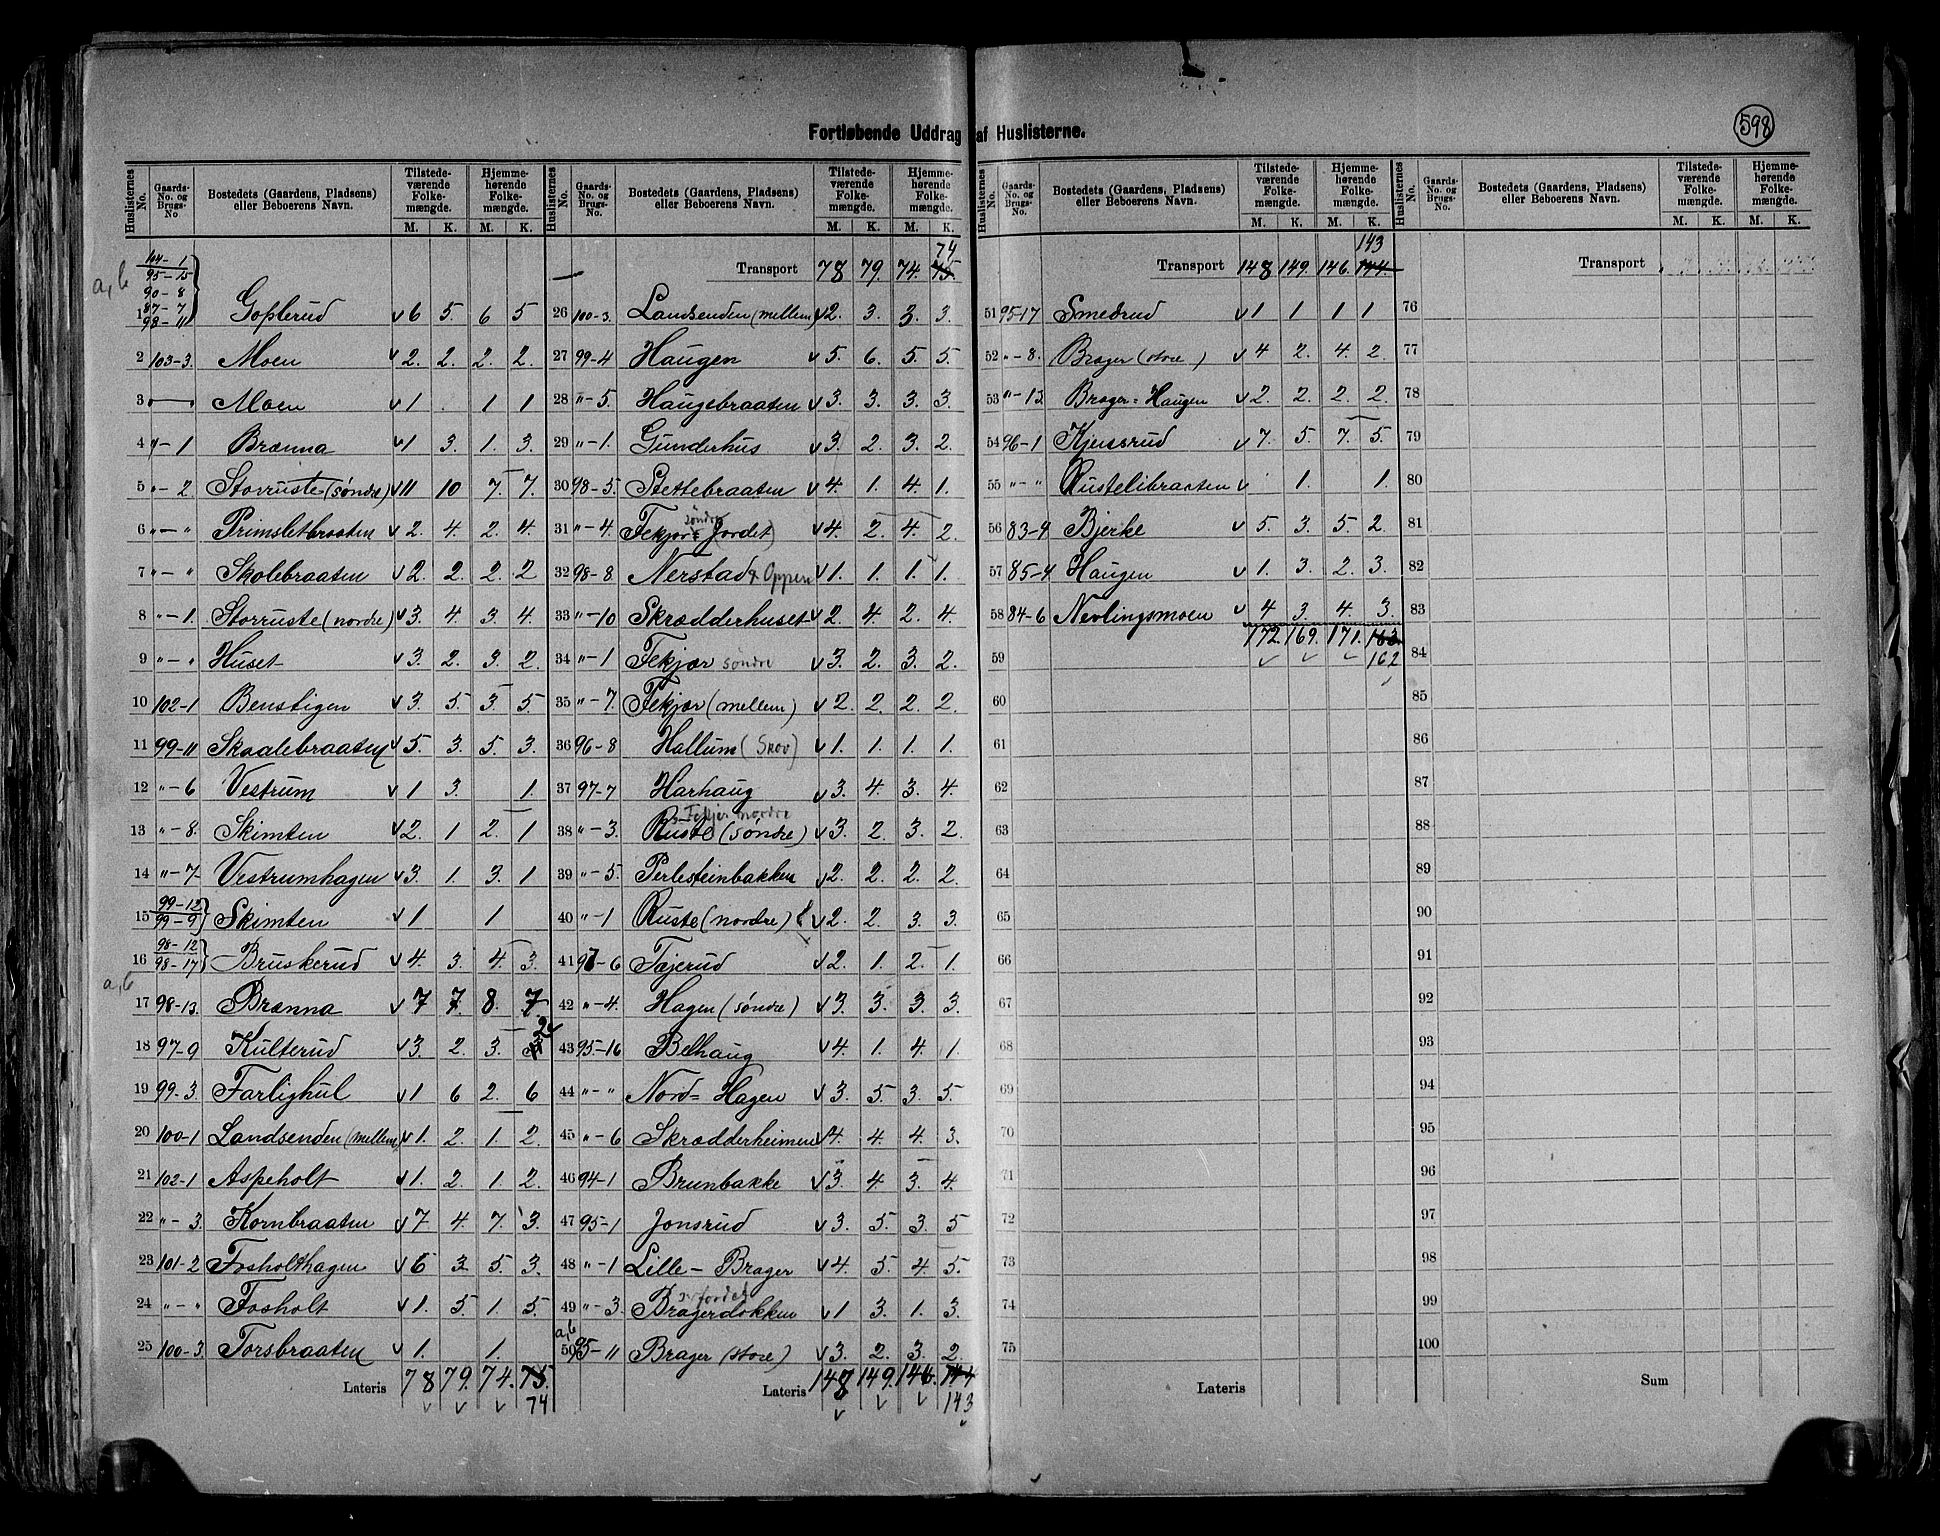 598
Fortløbende Uddrag af Huslisterne.
Huslisternes No. | Gaards-No. og Brugs-No. | Bostedets (Gaardens, Pladsens) eller Beboerens Navn. | Tilstedeværende Folkemængde. M. K. | Hjemmehørende Folkemængde. M. K.
a,b
104-1
95-15
90-8
87-7
1 98-11 Goplerud 6 5. 6 5
2 103-3. Moen 2. 2. 2. 2.
3 Moen 1 . 1 1
4 "-1 Brænna 1 3. 1. 3.
5 "-2. Storruste (søndre) 11 10 7. 7.
6 "-" Primsletbraaten 2. 4. 2. 4.
7 "-" Skolebraaten 2. 2. 2. 2
8 "-1. Storruste (nordre) 3. 4. 3. 4.
9 "-" Huset 3. 2. 3. 2.
10 102-1 Benstigen 3. 5. 3. 5.
11 99-11 Skaalebraaten 5. 3. 5. 3.
12 "-6 Vestrum 1 3. 1.
13 "-8. Skimten 2. 1 2. 1
14 "-7. Vestrumhagen 3. 1. 3. 1
99-12
15 99-9 Skimten 1 1
98-12
16 98-17 Bruskerud 4. 3. 4. 3.
a,b
17 98-13. Brænna 7 7. 8. 7.
18 97-9 Kulterud 3. 2. 3. 2
19 99-3. Farlighul 1 6 2. 6
20 100-1 Landsenden (mellem) 1. 2. 1. 2.
21 102-1 Aspeholt 1. 2. 1. 2.
22 "-3. Kornbraaten 7. 4. 7. 3.
23 101-2 Fosholthagen 6 3. 5. 3.
24 "-" Fosholt 1. 5 1. 5.
25 100-3. Torsbraaten 1. 1.
Lateris 78 79. 74. 75.
74
74
Transport 78 79. 74. 75.
26 100-3. Landsenden (mellem) 2. 3. 3. 3.
27 99-4 Haugen 5. 6. 5. 5.
28 "-5. Haugebraaten 3. 3. 3. 3.
29 "-1. Gunderhus 3. 2. 3. 2.
30 98-5. Stettebraaten 4. 1. 4. 1.
søndre
31 "-4. Fekjær (Jordet) 4. 2. 4. 2.
32 98-8. Nerstad Oppen 1. 1. 1. 1.
33 "-10 Skrædderhuset 2. 4. 2. 4.
34 "-1 Fekjær søndre 3. 2. 3. 2.
35 "-7. Fekjær (mellem) 2. 2. 2. 2.
36 96-8 Hallum (Skov) 1. 1. 1. 1.
37 97-7 Harhaug 3. 4. 3. 4.
Fekjær nordre
38 "-3. Ruste (søndre) 3. 2. 3. 2.
39 "-5. Perlesteinbakken 2. 2. 2. 2.
40 "-1 Ruste (nordre) 2. 2. 3. 3.
41 97-6 Tajerud 2. 1. 2. 1.
42 "-4. Hagen (søndre) 3. 3. 3. 3.
43 95-16 Belhaug 4. 1. 4. 1.
44 "-" Nord=Hagen 3. 5. 3. 5.
45 "-6 Skrædderheimen 4. 4. 4. 3.
46 94-1 Brunbakke 3. 4. 3. 4.
47 95-1 Jonsrud 3. 5. 3. 5
48 "-1 Lille-Brager 4. 5. 4. 5.
49 "-3. Bragerdokken 1 3. 1. 3.
a,b
50 95-11 Brager (store) 3. 2. 3. 2.
Lateris 148 149. 146. 144
143
Huslisternes No. | Gaards-No. og Brugs-No. | Bostedets (Gaardens, Pladsens) eller Beboerens Navn. | Tilstedeværende Folkemængde. M. K. | Hjemmehørende Folkemængde. M. K.
143
Transport 148 149. 146. 144.
51 95-17 Smedrud 1 1 1 1
52 "-8. Brager (store) 4 2. 4. 2.
53 "-13. Brager=Haugen 2. 2. 2. 2.
54 96-1 Kjensrud 7. 5. 7. 5.
55 "-" Rustelibraaten 1. 1.
56 83-9 Bjerke 5. 3. 5 2.
57 85-4 Haugen 1. 3. 2. 3.
58 84-6 Nevlingsmoen 4 3. 4. 3.
172. 169. 171. 163.
162
59
60
61
62
63
64
65
66
67
68
69
70
71
72
73
74
75
Lateris
Transport
76
77
78
79
80
81
82
83
84
85
86
87
88
89
90
91
92
93
94
95
96
97
98
99
100
Sum